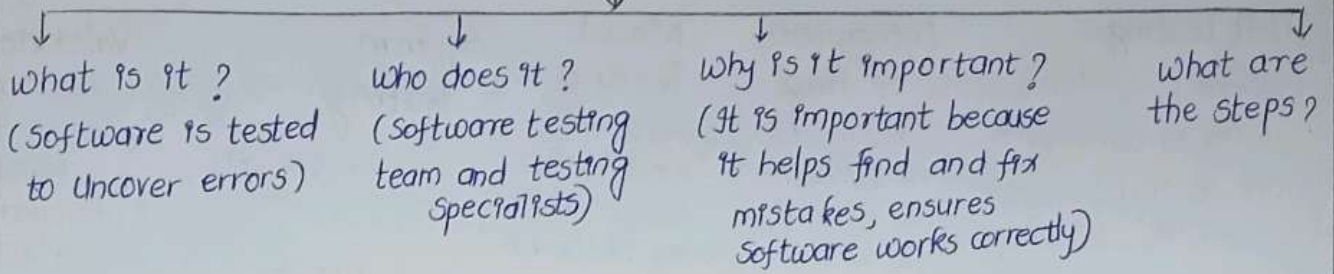 What is it ?
(Software is tested
to Uncover errors)
who does it ?
(Software testing
team and testing
Specialists)
Why is it important ?
(It is important because
it helps find and fix
mistakes, ensures
Software works correctly)
what are
the steps ?